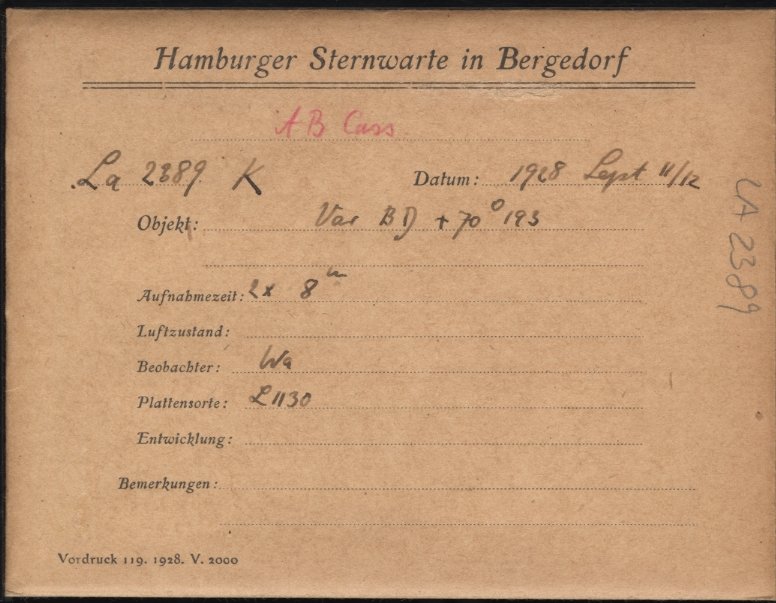 Hamburger Sternwarte in Bergedorf
AB Cass
La 2389 K Datum: 1928 Sept 11/12
Objekt: Var BD +70° 193
Aufnahmezeit: 2x 8m
Luftzustand:
Beobachter: Wa
Plattensorte: L 1130
Entwicklung:
Bemerkungen:
Vordruck 119. 1928. V. 2000
LA 2389